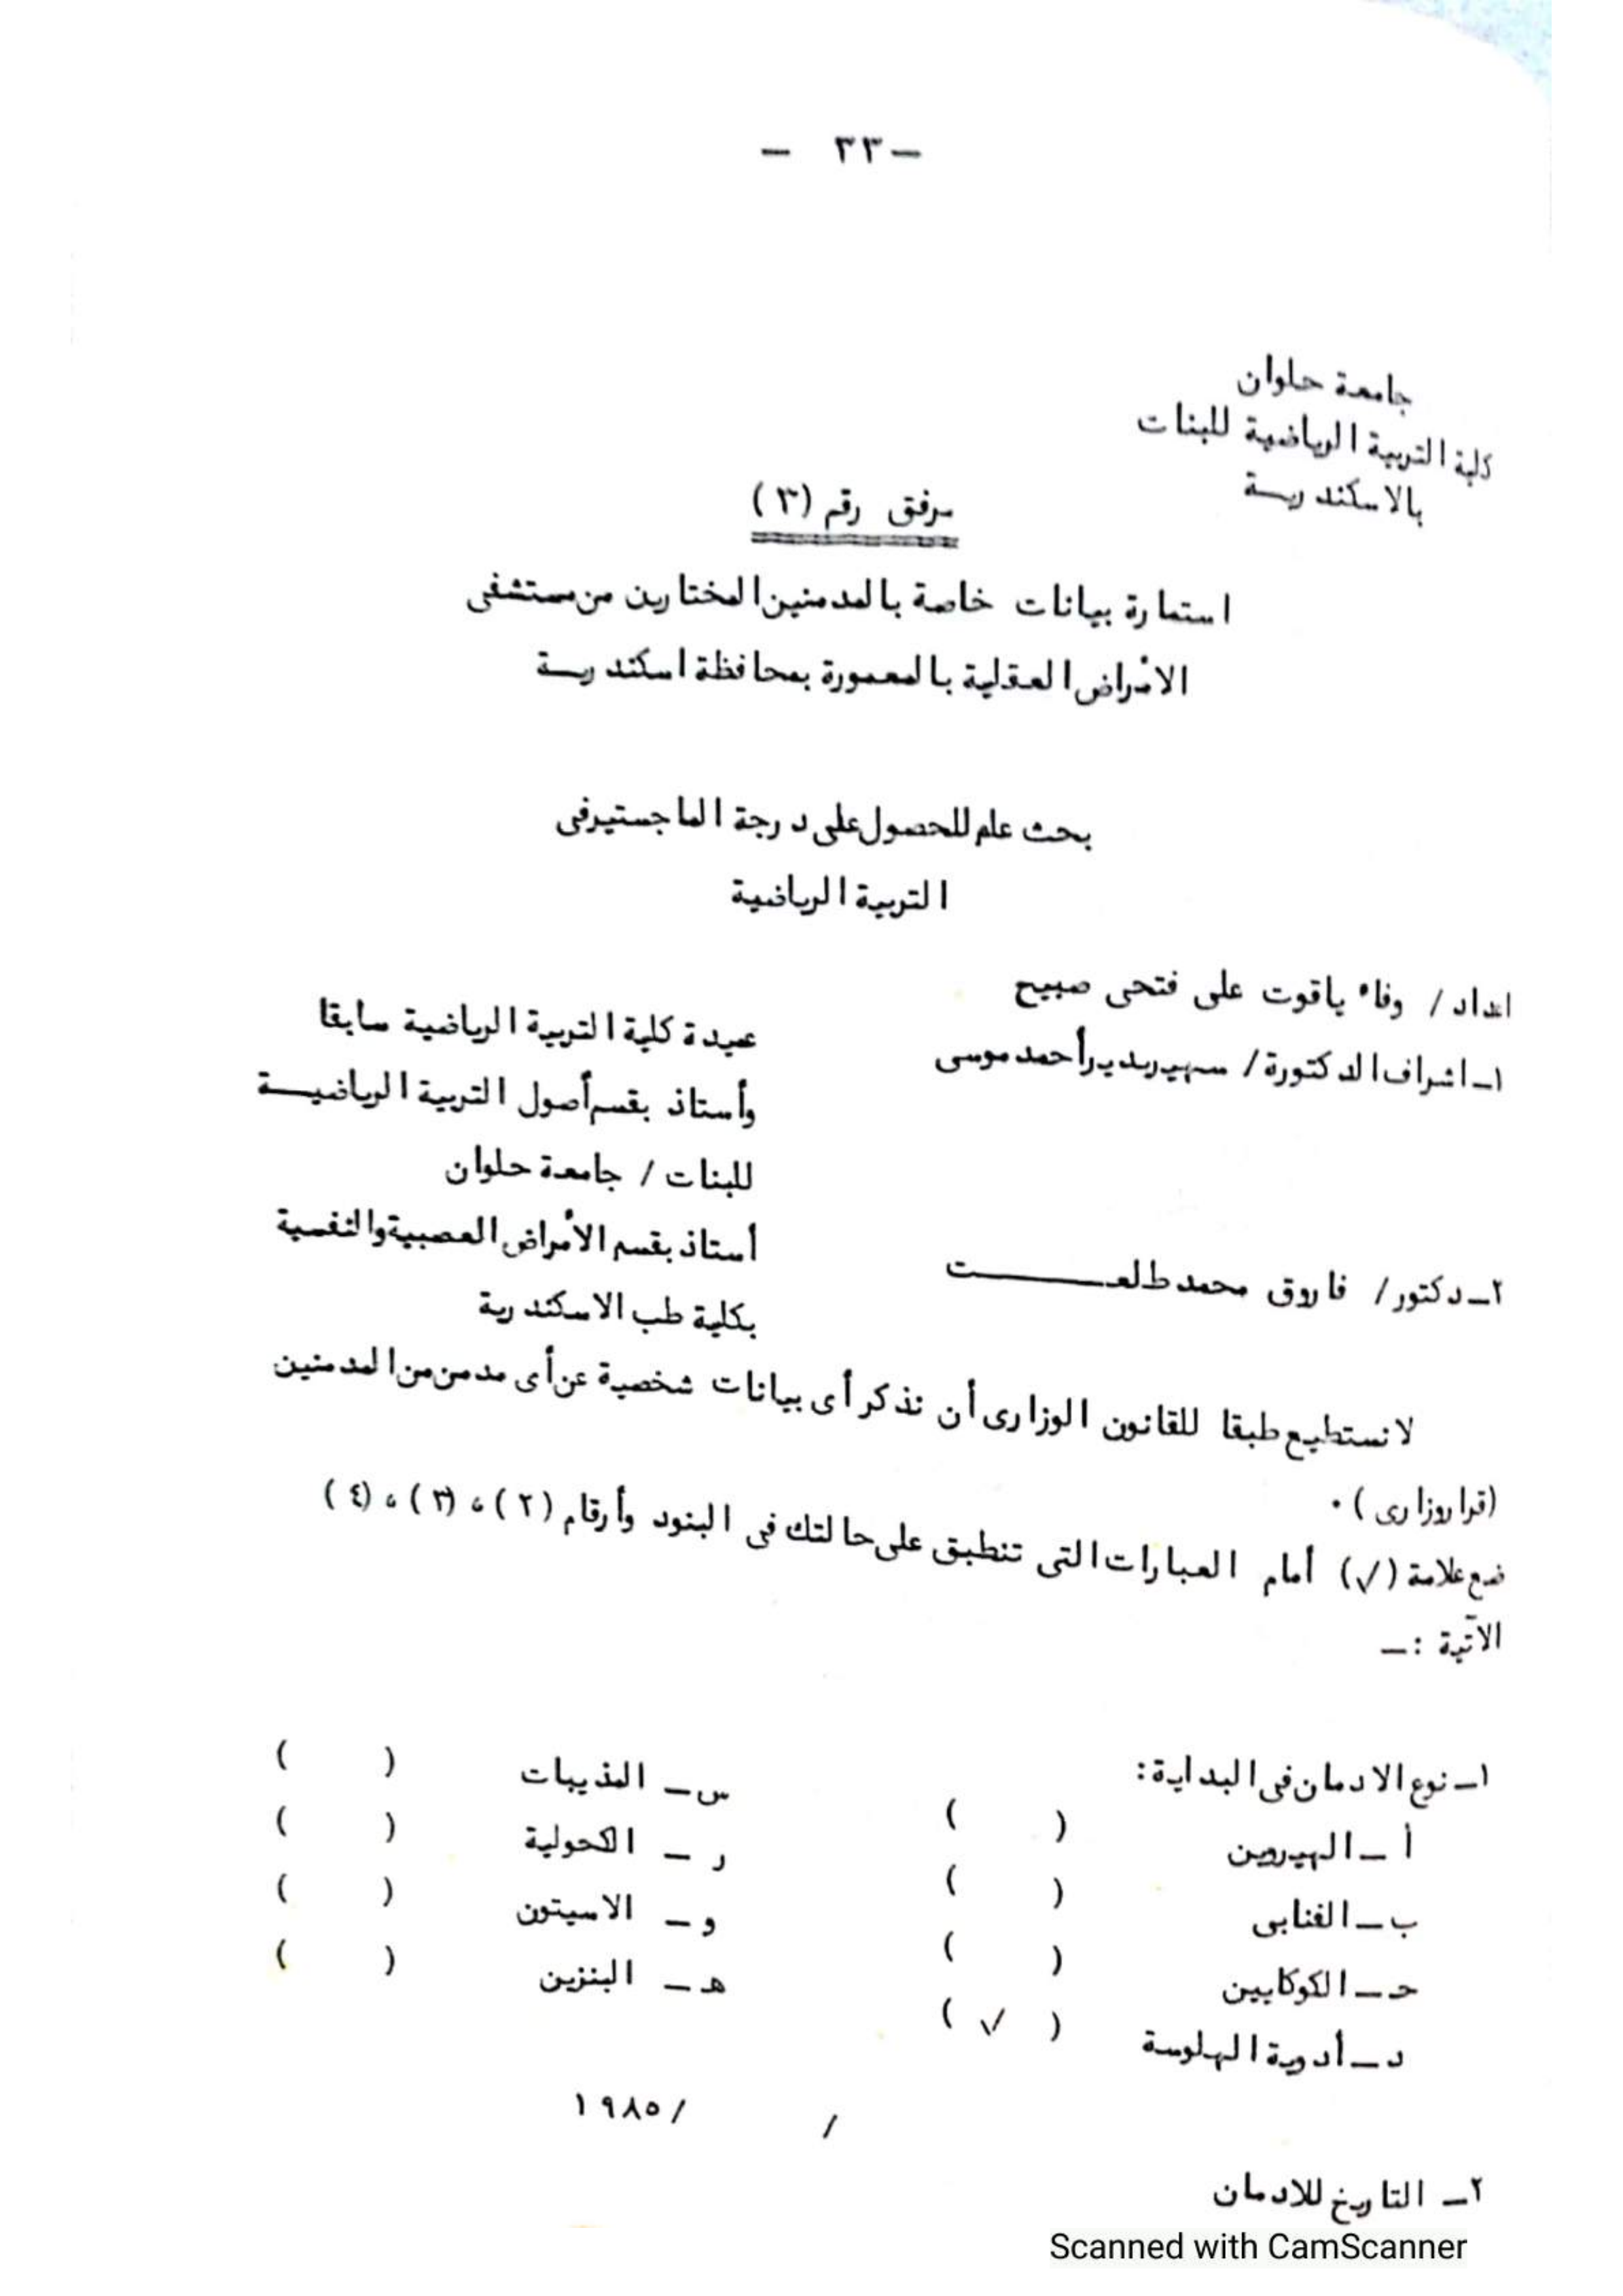 - ٣٣ -
جامعة حلوان
كلية التربية الرياضية للبنات
بالاسكندريـة
مرفق رقم (٣)
استمارة بيانات خاصة بالمدمنين المختارين من مستشفى
الأمراض العقلية بالمعمورة بمحافظة اسكندريـة
بحث علم للحصول على درجة الماجستير فى
التربية الرياضية
اعداد / وفاء ياقوت على فتحى صبيح
١- اشراف الدكتورة / سهير بدير أحمد موسى
عميدة كلية التربية الرياضية سابقا
وأستاذ بقسم أصول التربية الرياضيـة
للبنات / جامعة حلوان
٢- دكتور / فاروق محمد طلعـــــت
أستاذ بقسم الأمراض العصبية والنفسية
بكلية طب الاسكندرية
لا نستطيع طبقا للقانون الوزارى أن نذكر أى بيانات شخصية عن أى مدمن من المدمنين
(قرار وزارى) .
ضع علامة (√) أمام العبارات التى تنطبق على حالتك فى البنود وأرقام (٢) ، (٣) ، (٤)
الآتية :-
١- نوع الادمان فى البداية:
أ - الهيروين ( )
ب - القنابى ( )
حـ - الكوكايين ( )
د - أدوية الهلوسة ( √ )
س - المذيبات ( )
ر - الكحولية ( )
و - الاسيتون ( )
هـ - البنزين ( )
/ / ١٩٨٥
٢- التاريخ للادمان
Scanned with CamScanner